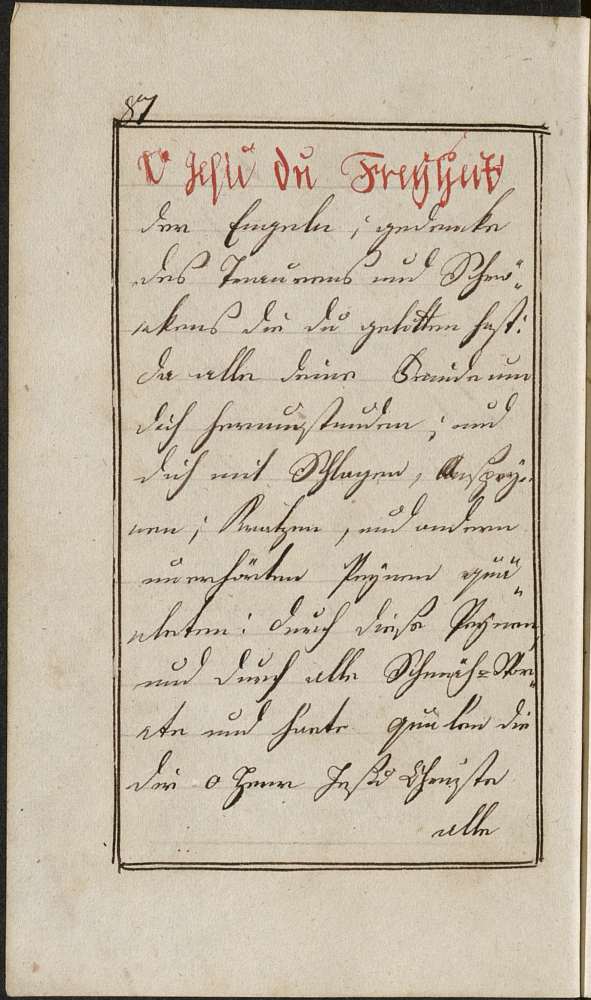 87
O Jesu du Freyheit
der Engeln; gedencke
des Traurens und Schrö„
ckens die du gelitten hast:
da alle deine Feinde um
dich herumstunden; und
dich mit Schlagen, Anspey„
nen; Kratzen, und andern
unerhörten Peynen quä„
leten: durch diese Peynen,
und durch alle Schmäh=Wor„
rte und harte quälen die
dir o Herr Jesu Christe
alle